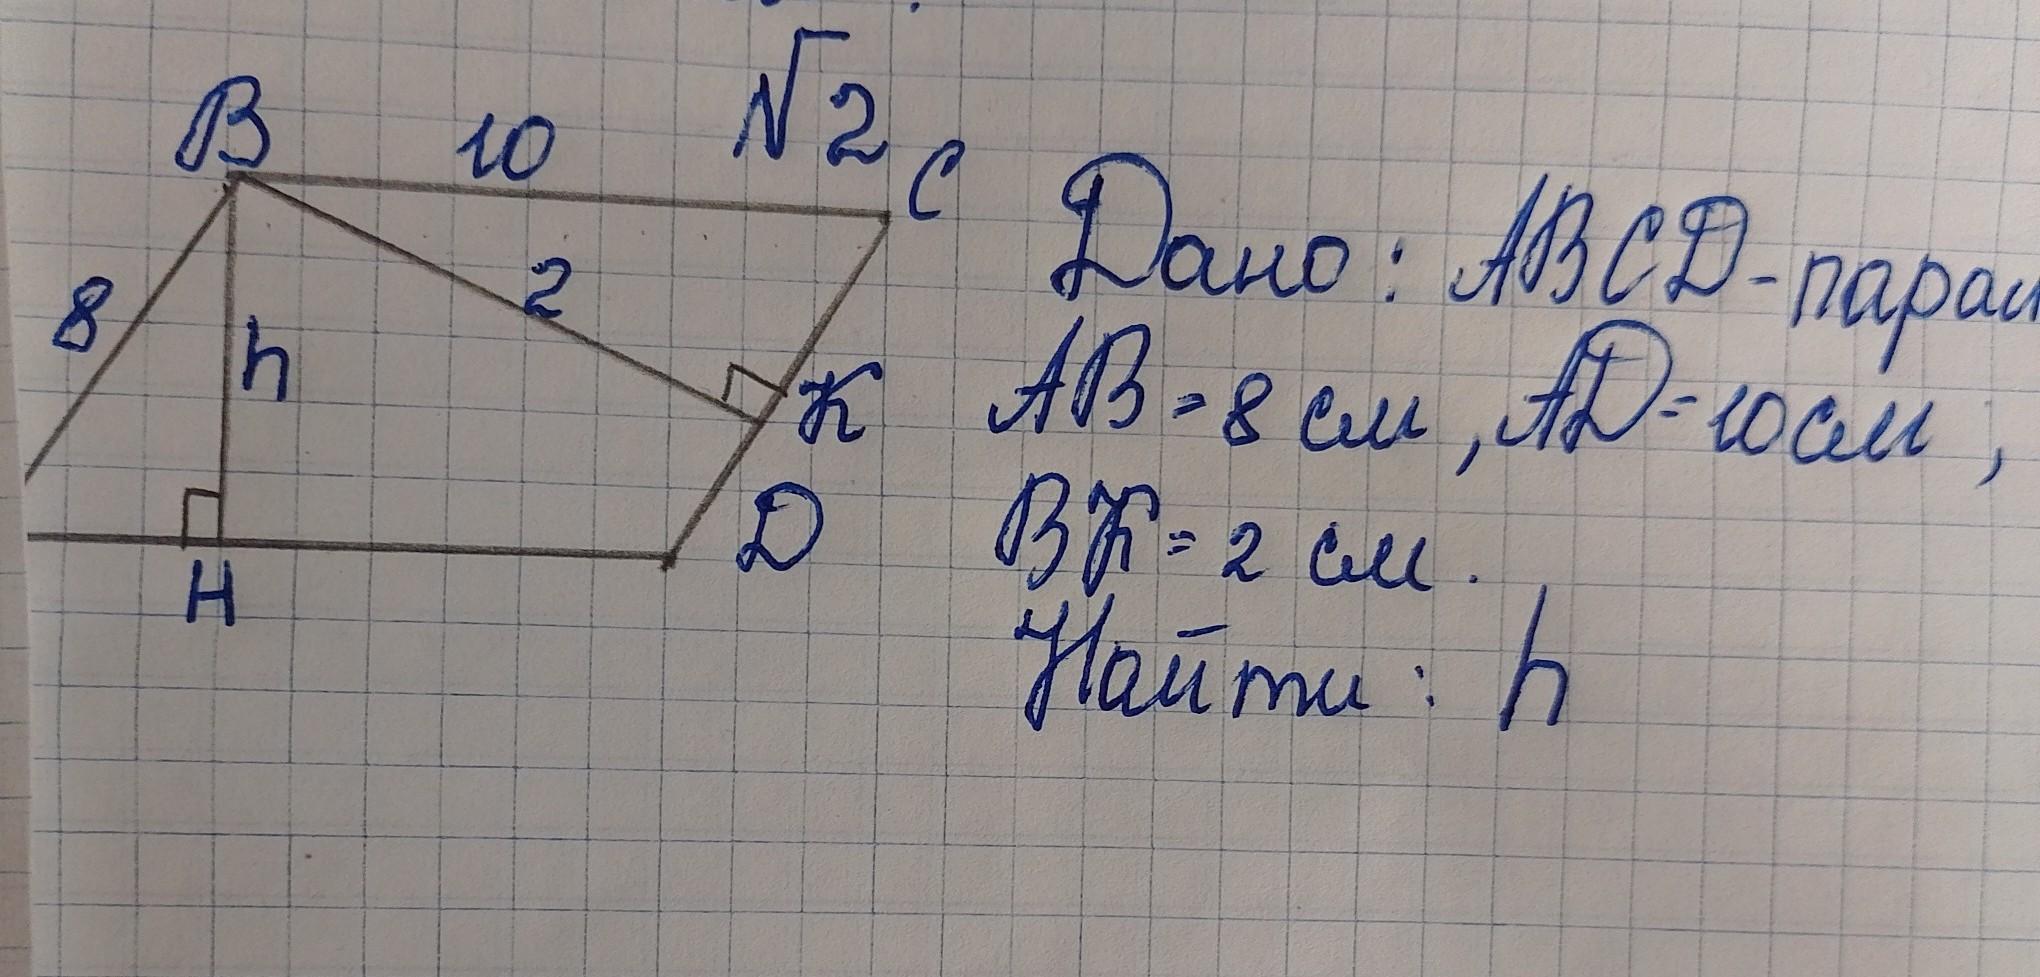 √2
B 10 C
8 h 2 K
H D
Дано: ABCD-парал
AB=8 см, AD=10см,
BK=2 см.
Найти: h